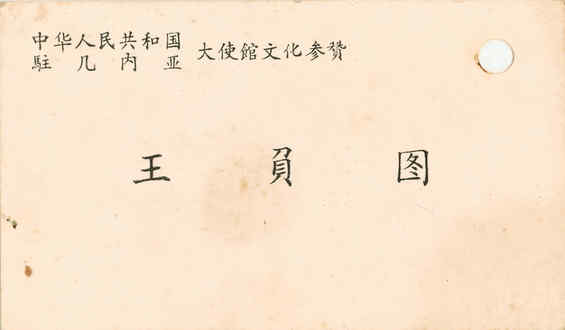 中华人民共和国
駐几内亚 大使館文化参贊
王負图